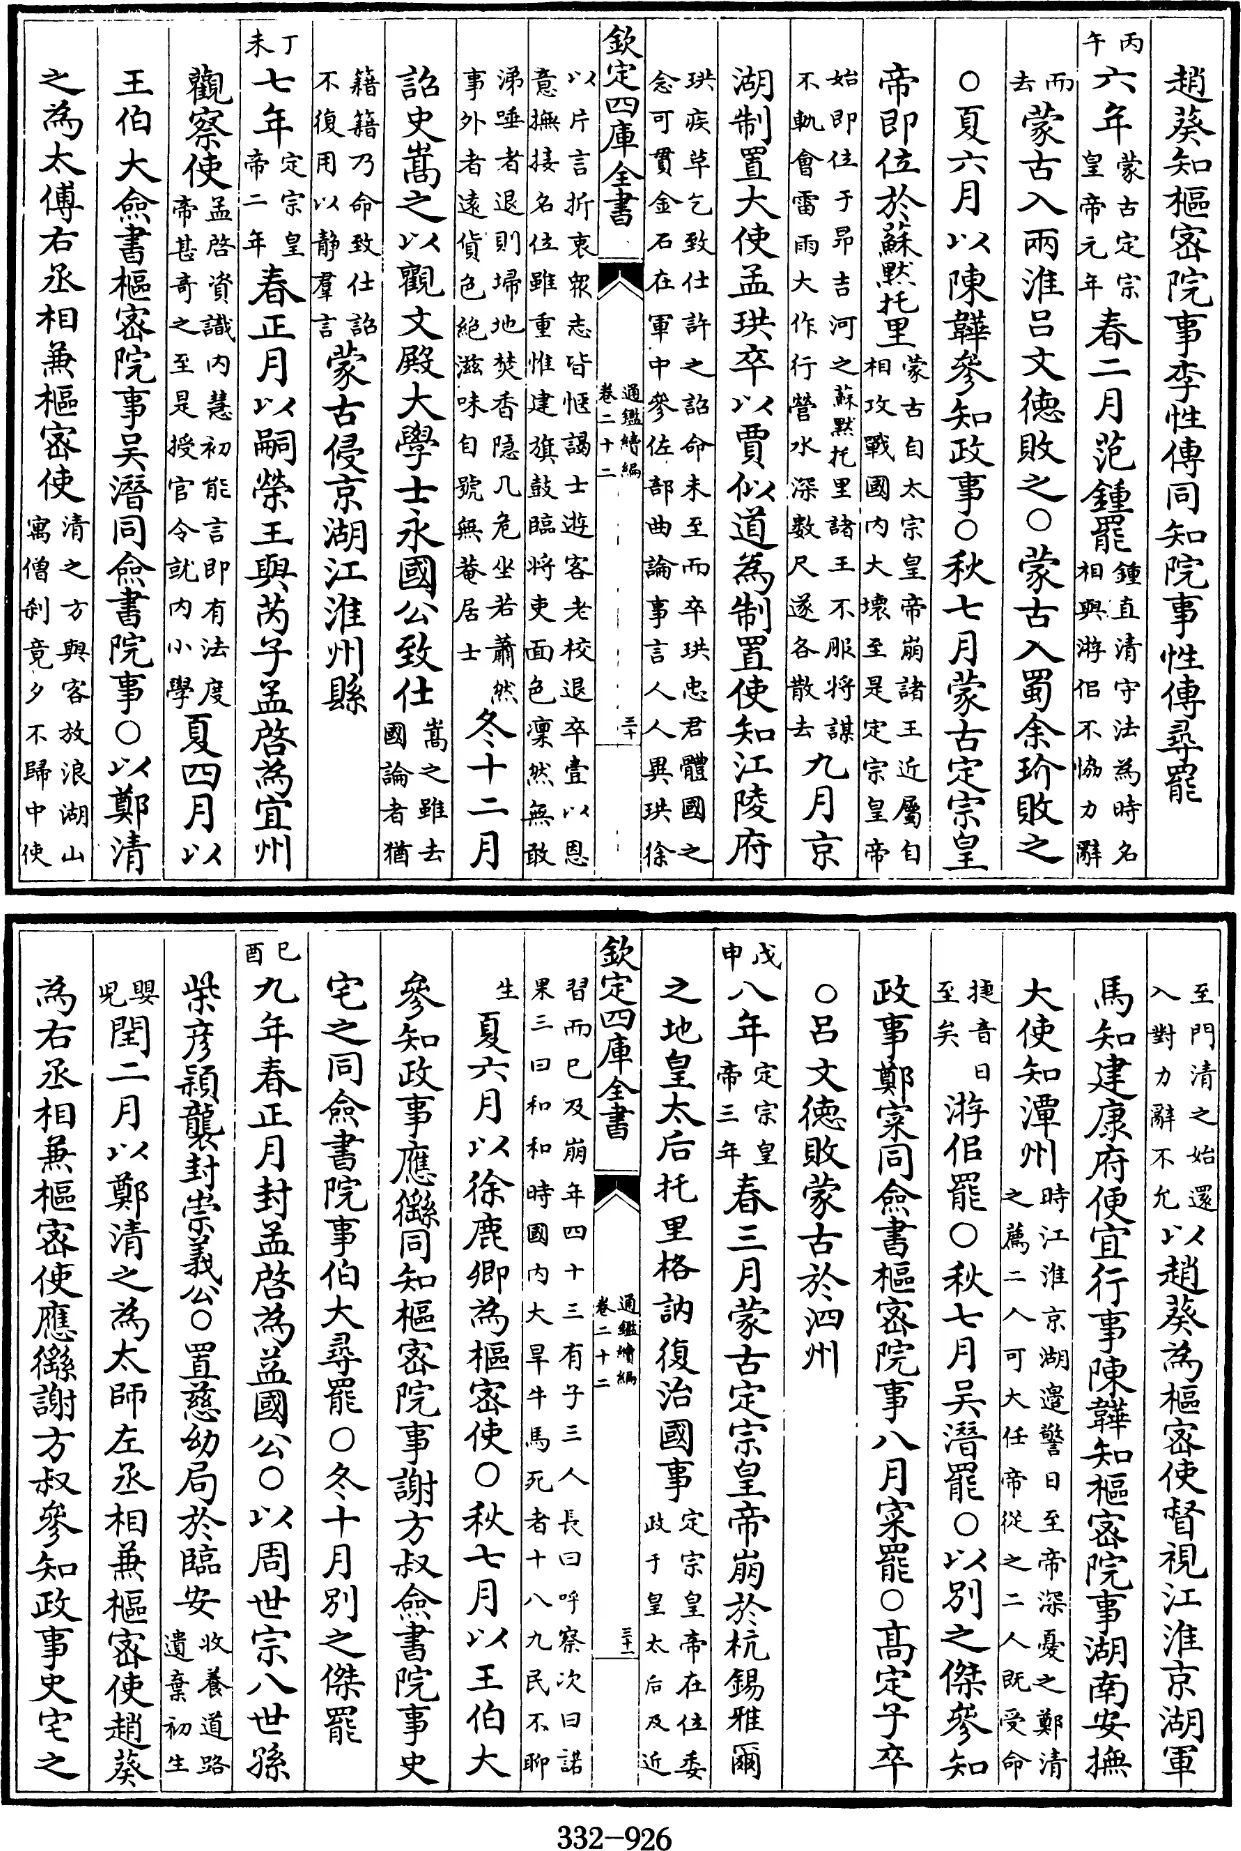 趙葵知樞宻院事李性傳同知院事性傳尋罷
丙午六年蒙古定宗皇帝元年春二月范鍾罷鍾直清守法為時名相與游佀不協力辭
而去蒙古入兩淮吕文徳敗之○蒙古入蜀余玠敗之
○夏六月以陳韡參知政事○秋七月蒙古定宗皇
帝即位於蘇黙托里蒙古自太宗皇帝崩諸王近屬自相攻戰國内大壊至是定宗皇帝
始即位于昻吉河之蘇黙托里諸王不服將謀不軌會雷雨大作行營水深数尺遂各散去九月京
湖制置大使孟珙卒以賈似道為制置使知江陵府
珙疾草乞致仕許之詔命未至而卒珙忠君體國之念可貫金石在軍中參佐部曲論事言人人異珙徐
欽定四庫全書 通鑑續編卷二十二 三十
以片言折衷衆志皆愜謁士遊客老校退卒壹以恩意撫接名位雖重惟建旗鼓臨將吏面色凜然無敢
涕唾者退則埽地焚香隠几危坐若蕭然事外者遠貨色絶滋味自號無菴居士冬十二月
詔史嵩之以觀文殿大學士永國公致仕嵩之雖去國論者猶
籍籍乃命致仕詔不復用以靜羣言蒙古侵京湖江淮州縣
丁未七年定宗皇帝二年春正月以嗣榮王與芮子孟啓為宜州
觀察使孟啓資識内慧初能言即有法度帝甚竒之至是授官令就内小學夏四月以
王伯大僉書樞宻院事吴潛同僉書院事○以鄭清
之為太傅右丞相兼樞宻使清之方與客放浪湖山寓僧刹竟夕不歸中使
至門清之始還入對力辭不允以趙葵為樞宻使督視江淮京湖軍
馬知建康府便宜行事陳韡知樞宻院事湖南安撫
大使知潭州時江淮京湖邊警日至帝深憂之鄭清之薦二人可大任帝從之二人既受命
捷音日至矣游佀罷○秋七月吴潛罷○以别之傑參知
政事鄭寀同僉書樞宻院事八月寀罷○髙定子卒
○吕文徳敗蒙古於泗州
戊申八年定宗皇帝三年春三月蒙古定宗皇帝崩於杭錫雅爾
之地皇太后托里格訥復治國事定宗皇帝在位委政于皇太后及近
欽定四庫全書 通鑑續編卷二十二 三十一
習而已及崩年四十三有子三人長曰呼察次曰諾果三曰和和時國内大旱牛馬死者十八九民不聊
生夏六月以徐鹿卿為樞宻使○秋七月以王伯大
參知政事應㒡同知樞宻院事謝方叔僉書院事史
宅之同僉書院事伯大尋罷○冬十月别之傑罷
己酉九年春正月封孟啓為益國公○以周世宗八世孫
柴彦穎襲封崇義公○置慈幼局於臨安收養道路遺棄初生
嬰兒閏二月以鄭清之為太師左丞相兼樞宻使趙葵
為右丞相兼樞宻使應㒡謝方叔參知政事史宅之
332-926